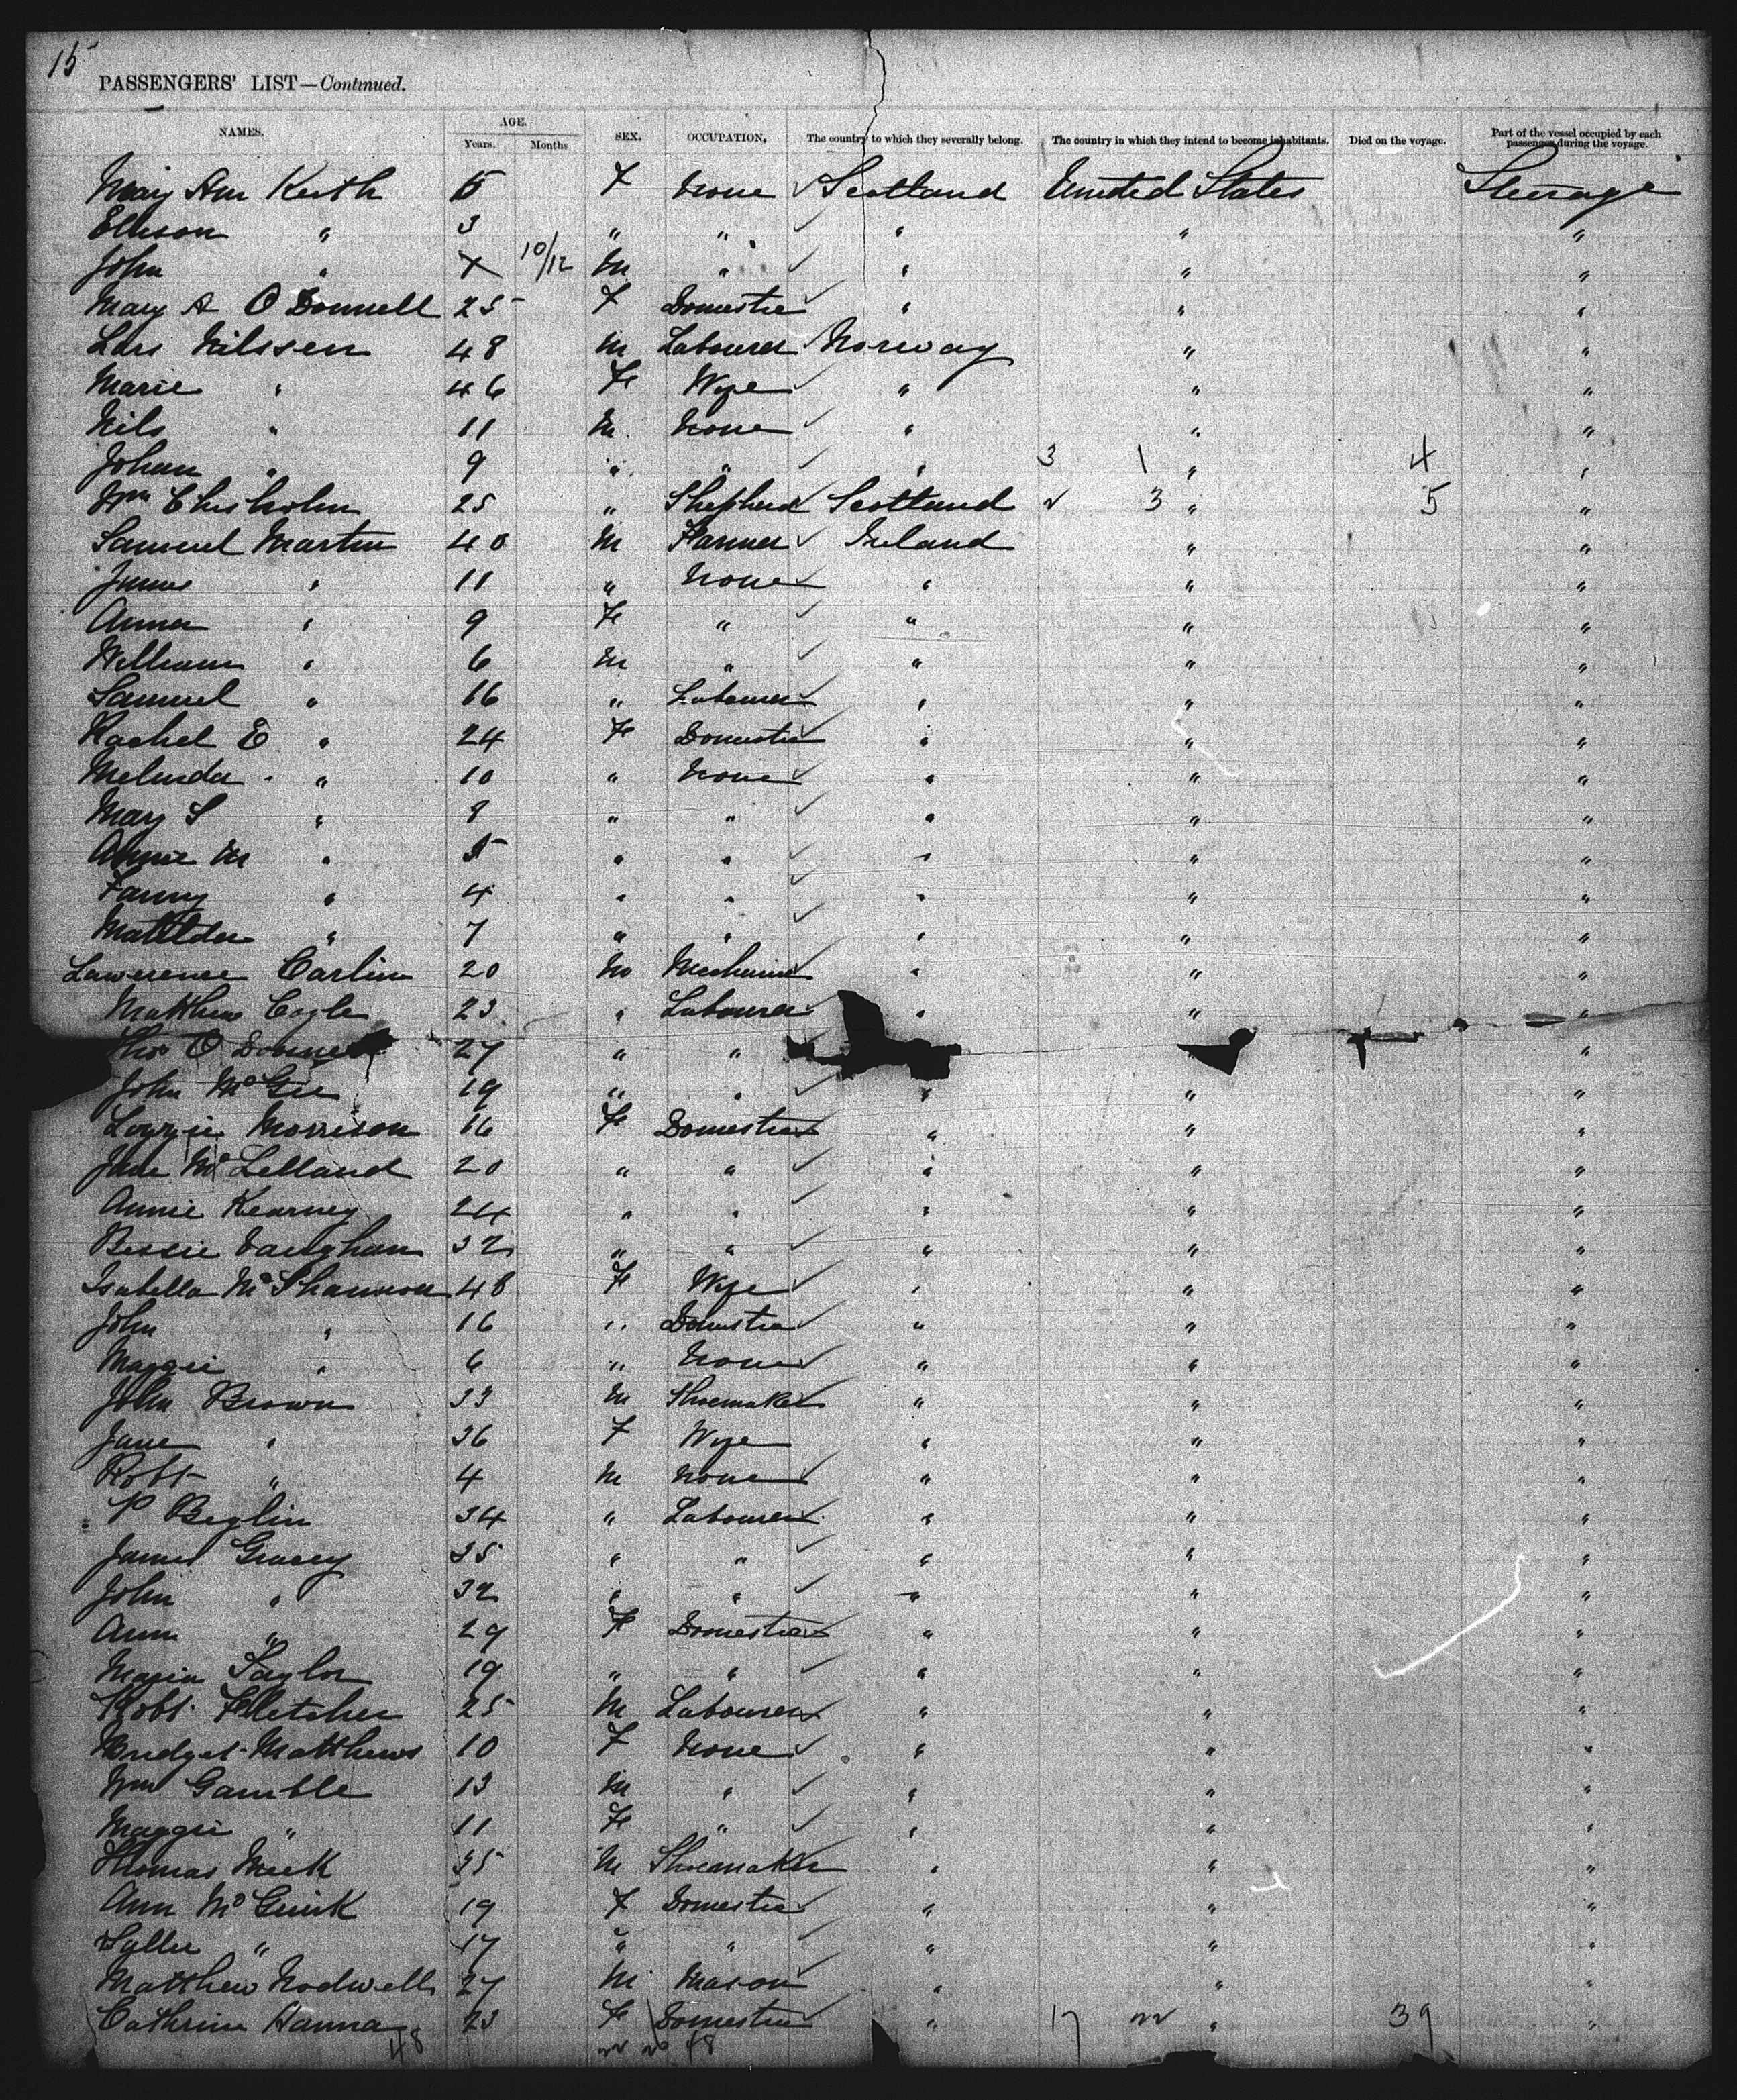 15
PASSENGERS' LIST—Continued.
NAMES. AGE. Years. Months SEX. OCCUPATION, The country to which they severally belong. The country in which they intend to become inhabitants. Died on the voyage. Part of the vessel occupied by each passenger during the voyage.
Mary Ann Keith 5 F None ✓ Scotland United States Steerage
Ellison " 3 " " ✓ " " "
John " 10/12 M " ✓ " " "
Mary A O Donnell 25 F Domestic ✓ " " "
Lars Nilssen 48 M Labourer Norway " "
Marie " 46 F Wife ✓ " " "
Nils " 11 M. None ✓ " " "
Johan " 9 " " ✓ " 3 1 " 4 "
Wm Chisholm 25 " Shepherd Scotland 3 " 5 "
Samuel Martin 40 M Farmer ✓ Ireland " "
James " 11 " None ✓ " " "
Anna " 9 F " ✓ " " "
William " 6 M " ✓ " " "
Samuel " 16 " Labourer ✓ " " "
Rachel E " 24 F Domestic ✓ " " "
Melinda " 10 " None ✓ " " "
Mary S " 8 " " ✓ " " "
Annie M " 5 " " ✓ " " "
Fanny " 4 " " ✓ " " "
Matilda " 7 " " ✓ " " "
Lawerence Carlin 20 M Mechanic ✓ " " "
Matthew Cogle 23 " Labourer ✓ " " "
Thos O Donnell 27 " " " "
John McGee 19 " " ✓ " " "
Lizzie Morrison 16 F Domestic ✓ " " "
Jane McLelland 20 " " ✓ " " "
Annie Kearney 24 " " ✓ " " "
Bessie Vaughan 32 " " ✓ " " "
Isabella McShannon 48 F Wife ✓ " " "
John " 16 " Domestic ✓ " " "
Maggie " 6 " None ✓ " " "
John Brown 33 M Shoemaker ✓ " " "
Jane " 36 F Wife ✓ " " "
Robt " 4 M None ✓ " " "
P Beglin 34 " Labourer ✓ " " "
James Gracey 35 " " ✓ " " "
John " 32 " " ✓ " " "
Ann " 29 F Domestic ✓ " " "
Maria Taylor 19 " " ✓ " " "
Robt. Fletcher 25 M Labourer ✓ " " "
Bridget Matthews 10 F None ✓ " " "
Wm Gamble 13 M " ✓ " " "
Maggie " 11 F " ✓ " " "
Thomas Meek 35 M Shoemaker " " "
Ann McGuirk 19 F Domestic ✓ " " "
" 17 " " ✓ " " "
Matthew Nodwell 27 M Mason ✓ " " "
Cathrine Hanna 23 F Domestic ✓ " 17 " 39 "
48 48